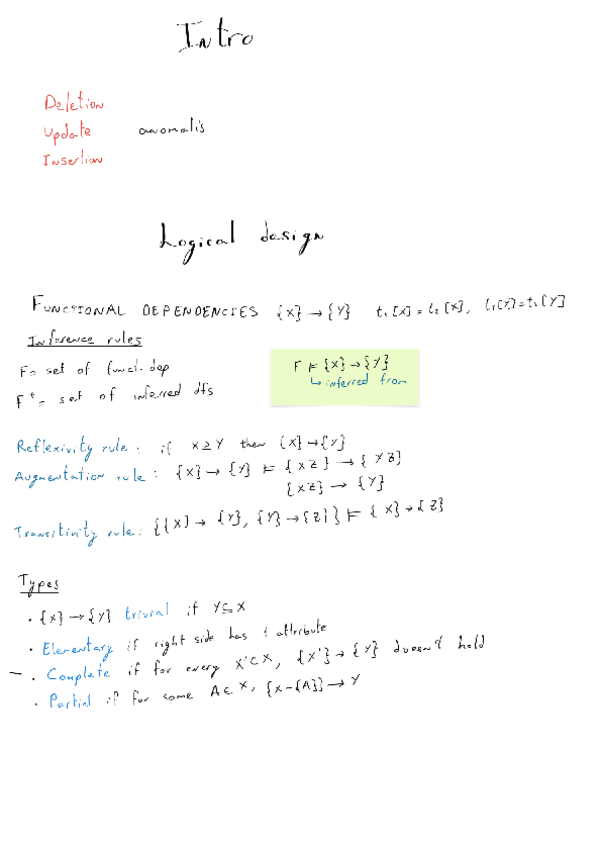 Intro
Deletion
Update anomalis
Insertion
Logical design
FUNCTIONAL DEPENDENCIES {X} → {Y} t₁[X] = t₂[X], t₁[Y] = t₂[Y]
Inference rules
F = set of funct. dep
F⁺ = set of inferred dfs
F ⊨ {X} → {Y}
↳ inferred from
Reflexivity rule: if X ⊇ Y then {X} → {Y}
Augmentation rule: {X} → {Y} ⊨ {XZ} → {YZ}
{XZ} → {Y}
Transitivity rule: {{X} → {Y}, {Y} → {Z}} ⊨ {X} → {Z}
Types
· {X} → {Y} trivial if Y ⊆ X
· Elementary if right side has 1 attribute
– · Complete if for every X' ⊂ X, {X'} → {Y} doesn't hold
· Partial if for some A ∈ X, {X-{A}} → Y